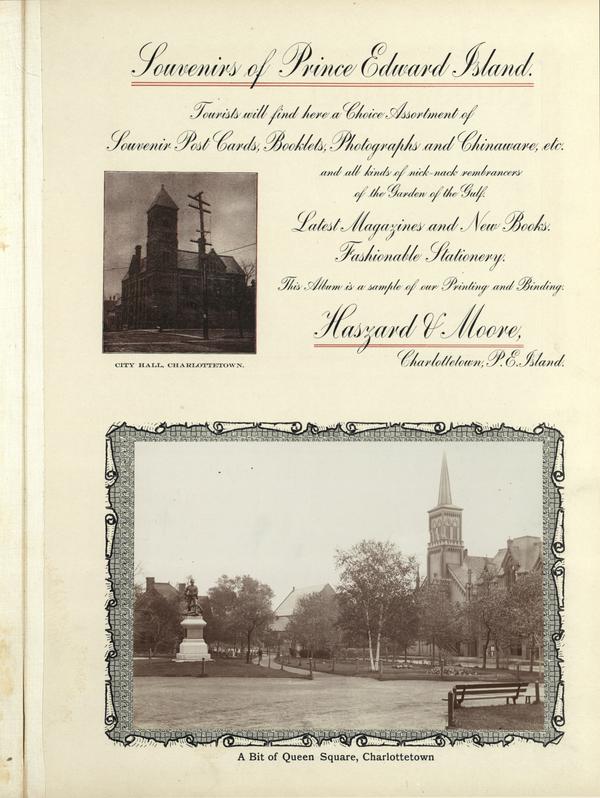 Souvenirs of Prince Edward Island.
Tourists will find here a Choice Assortment of
Souvenir Post Cards, Booklets, Photographs and Chinaware, etc.
and all kinds of nick-nack rembrancers
of the Garden of the Gulf.
Latest Magazines and New Books.
Fashionable Stationery.
This Album is a sample of our Printing and Binding.
Haszard & Moore,
Charlottetown, P. E. Island.
CITY HALL, CHARLOTTETOWN.
A Bit of Queen Square, Charlottetown